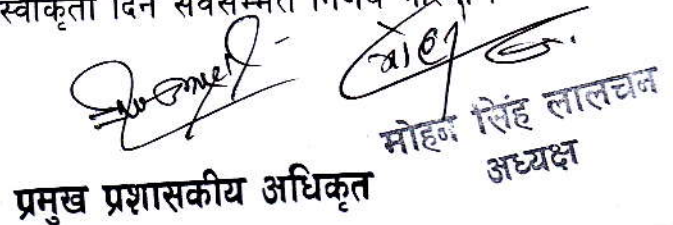 स्वीकृती दिने सर्वसम्मत निर्णय
मोहन सिंह लालचन
अध्यक्ष
प्रमुख प्रशासकीय अधिकृत